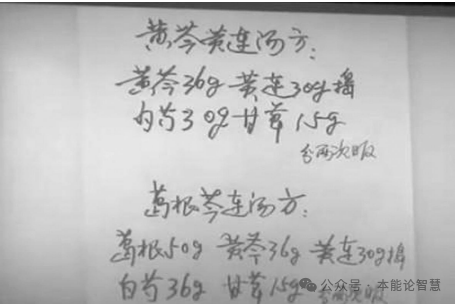 黄芩黄连汤方:
黄芩36g 黄连30g捣
白芍30g甘草15g
分两次服
葛根芩连汤方:
葛根50g 黄芩36g 黄连30g捣
白芍36g 甘草15g 分两次服
公众号·本能论智慧